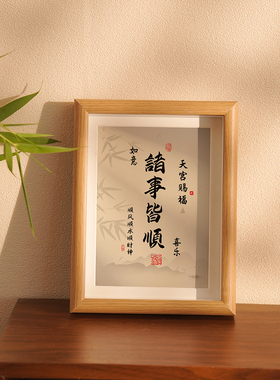 天宫赐福
喜乐
諸事皆順
如意
顺风顺水顺财神